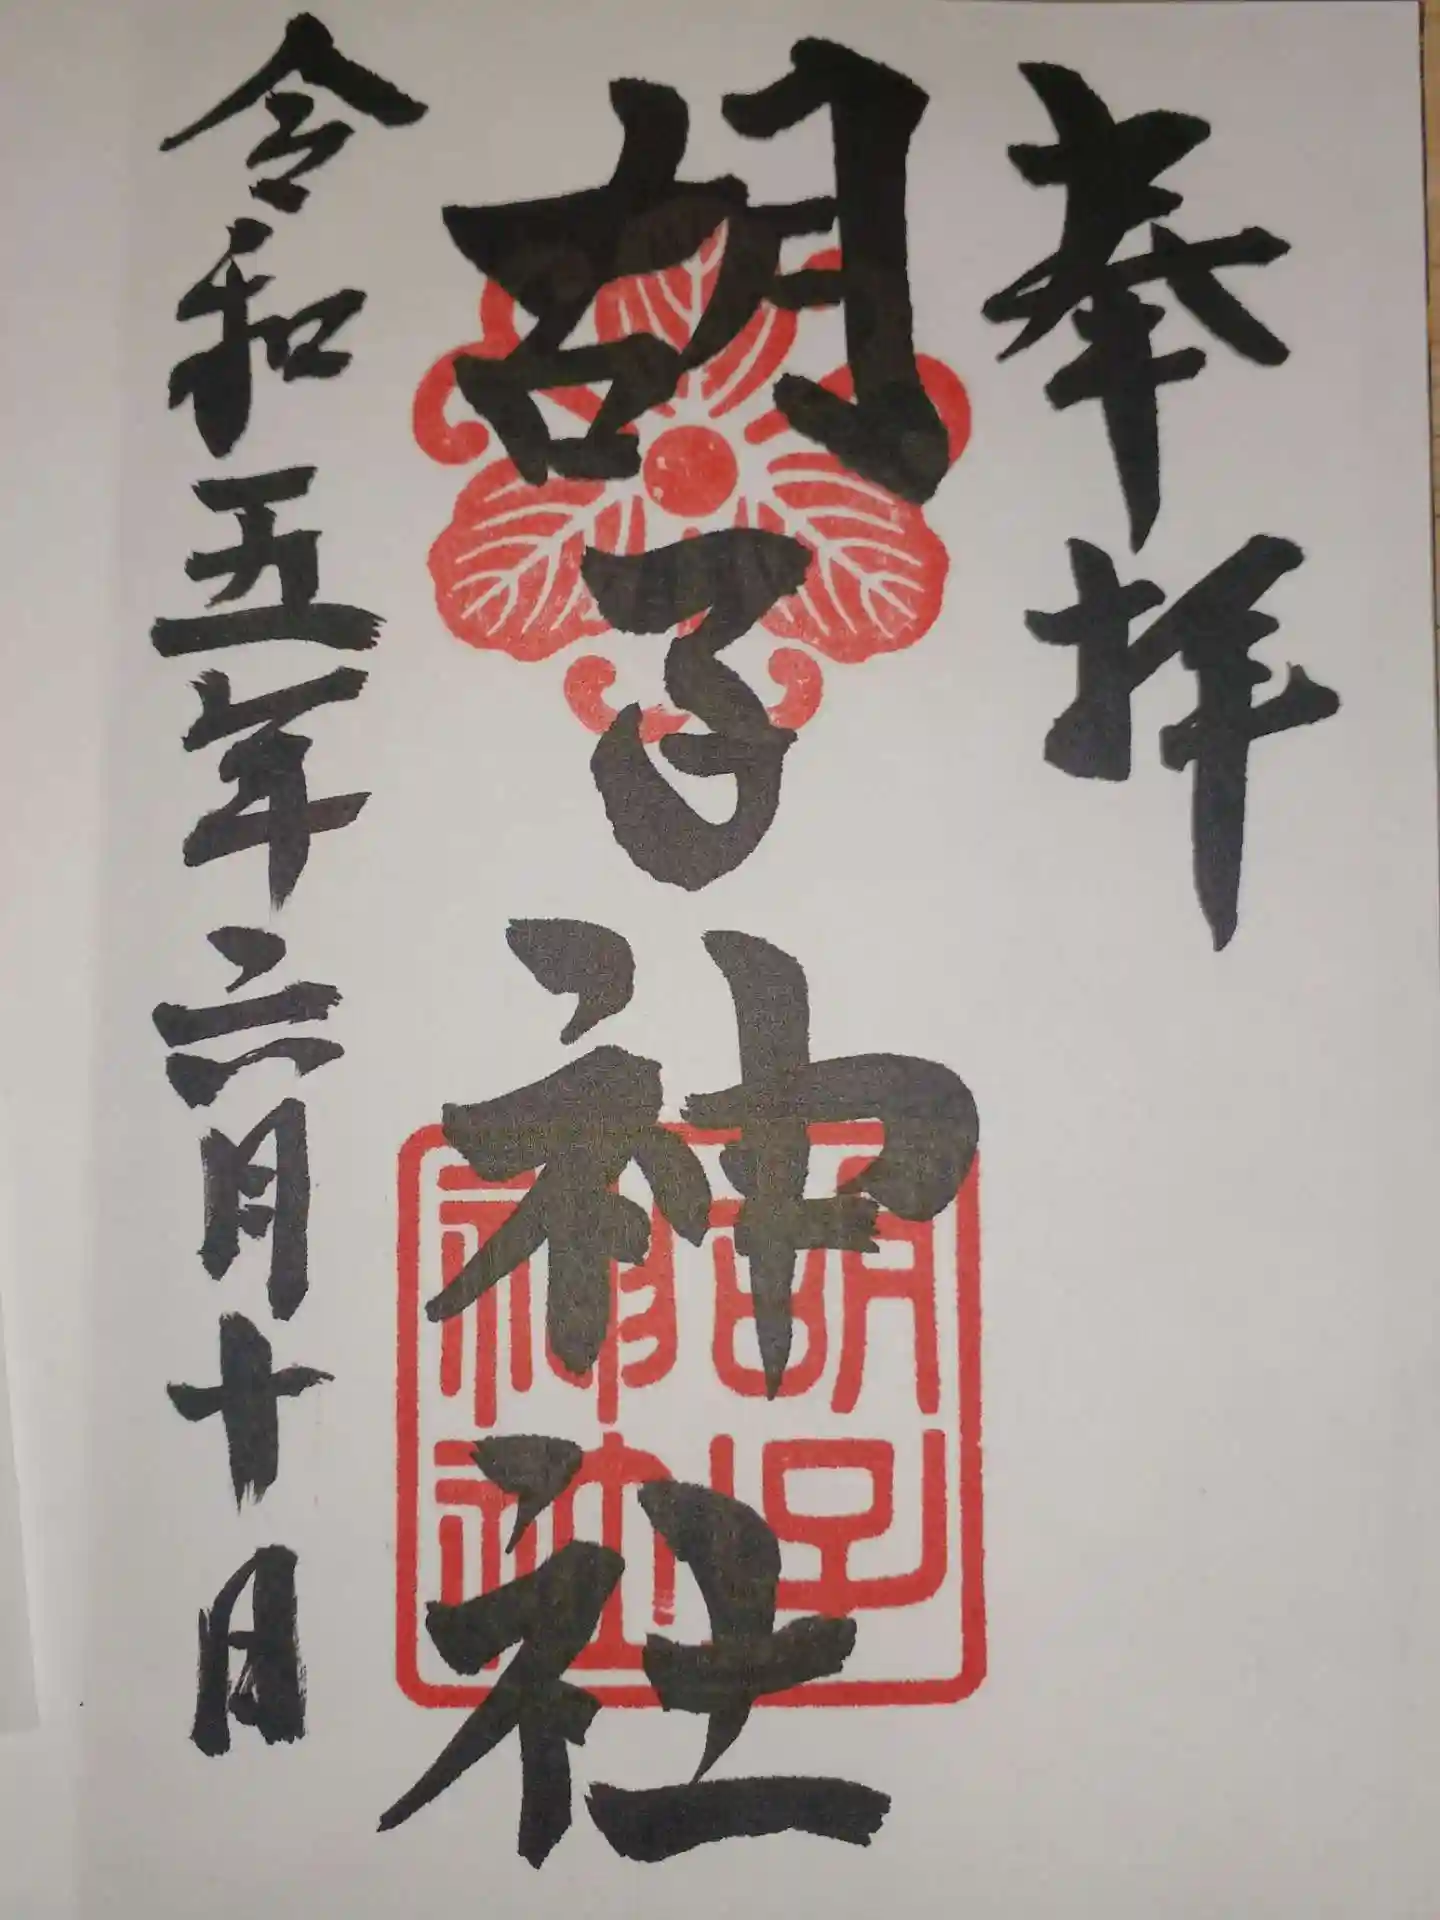 奉拝
胡子神社
胡子
神社
令和五年六月十日